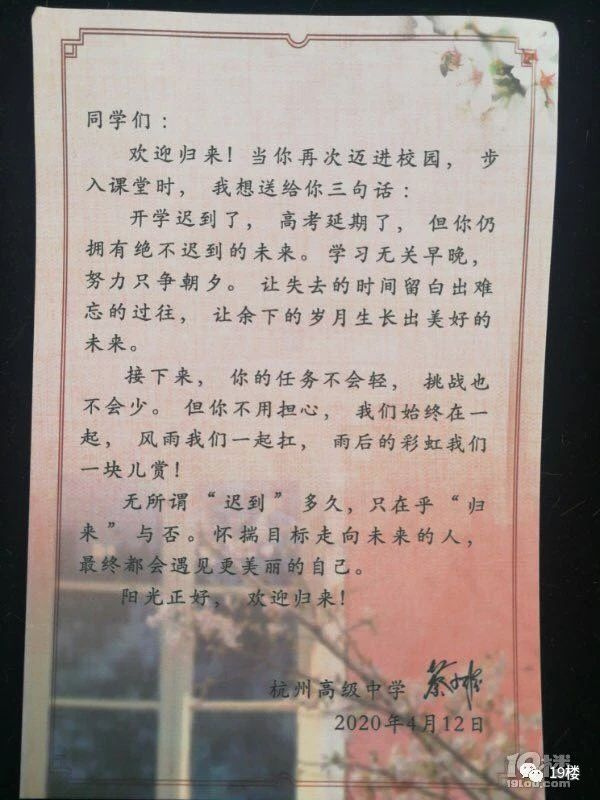 同学们：
欢迎归来！当你再次迈进校园， 步
入课堂时， 我想送给你三句话：
开学迟到了， 高考延期了， 但你仍
拥有绝不迟到的未来。学习无关早晚，
努力只争朝夕。 让失去的时间留白出难
忘的过往， 让余下的岁月生长出美好的
未来。
接下来， 你的任务不会轻， 挑战也
不会少。 但你不用担心， 我们始终在一
起， 风雨我们一起扛， 雨后的彩虹我们
一块儿赏！
无所谓“迟到”多久，只在乎“归
来”与否。怀揣目标走向未来的人，
最终都会遇见更美丽的自己。
阳光正好， 欢迎归来！
杭州高级中学
2020年4月12日
19楼
19lou.com
19楼